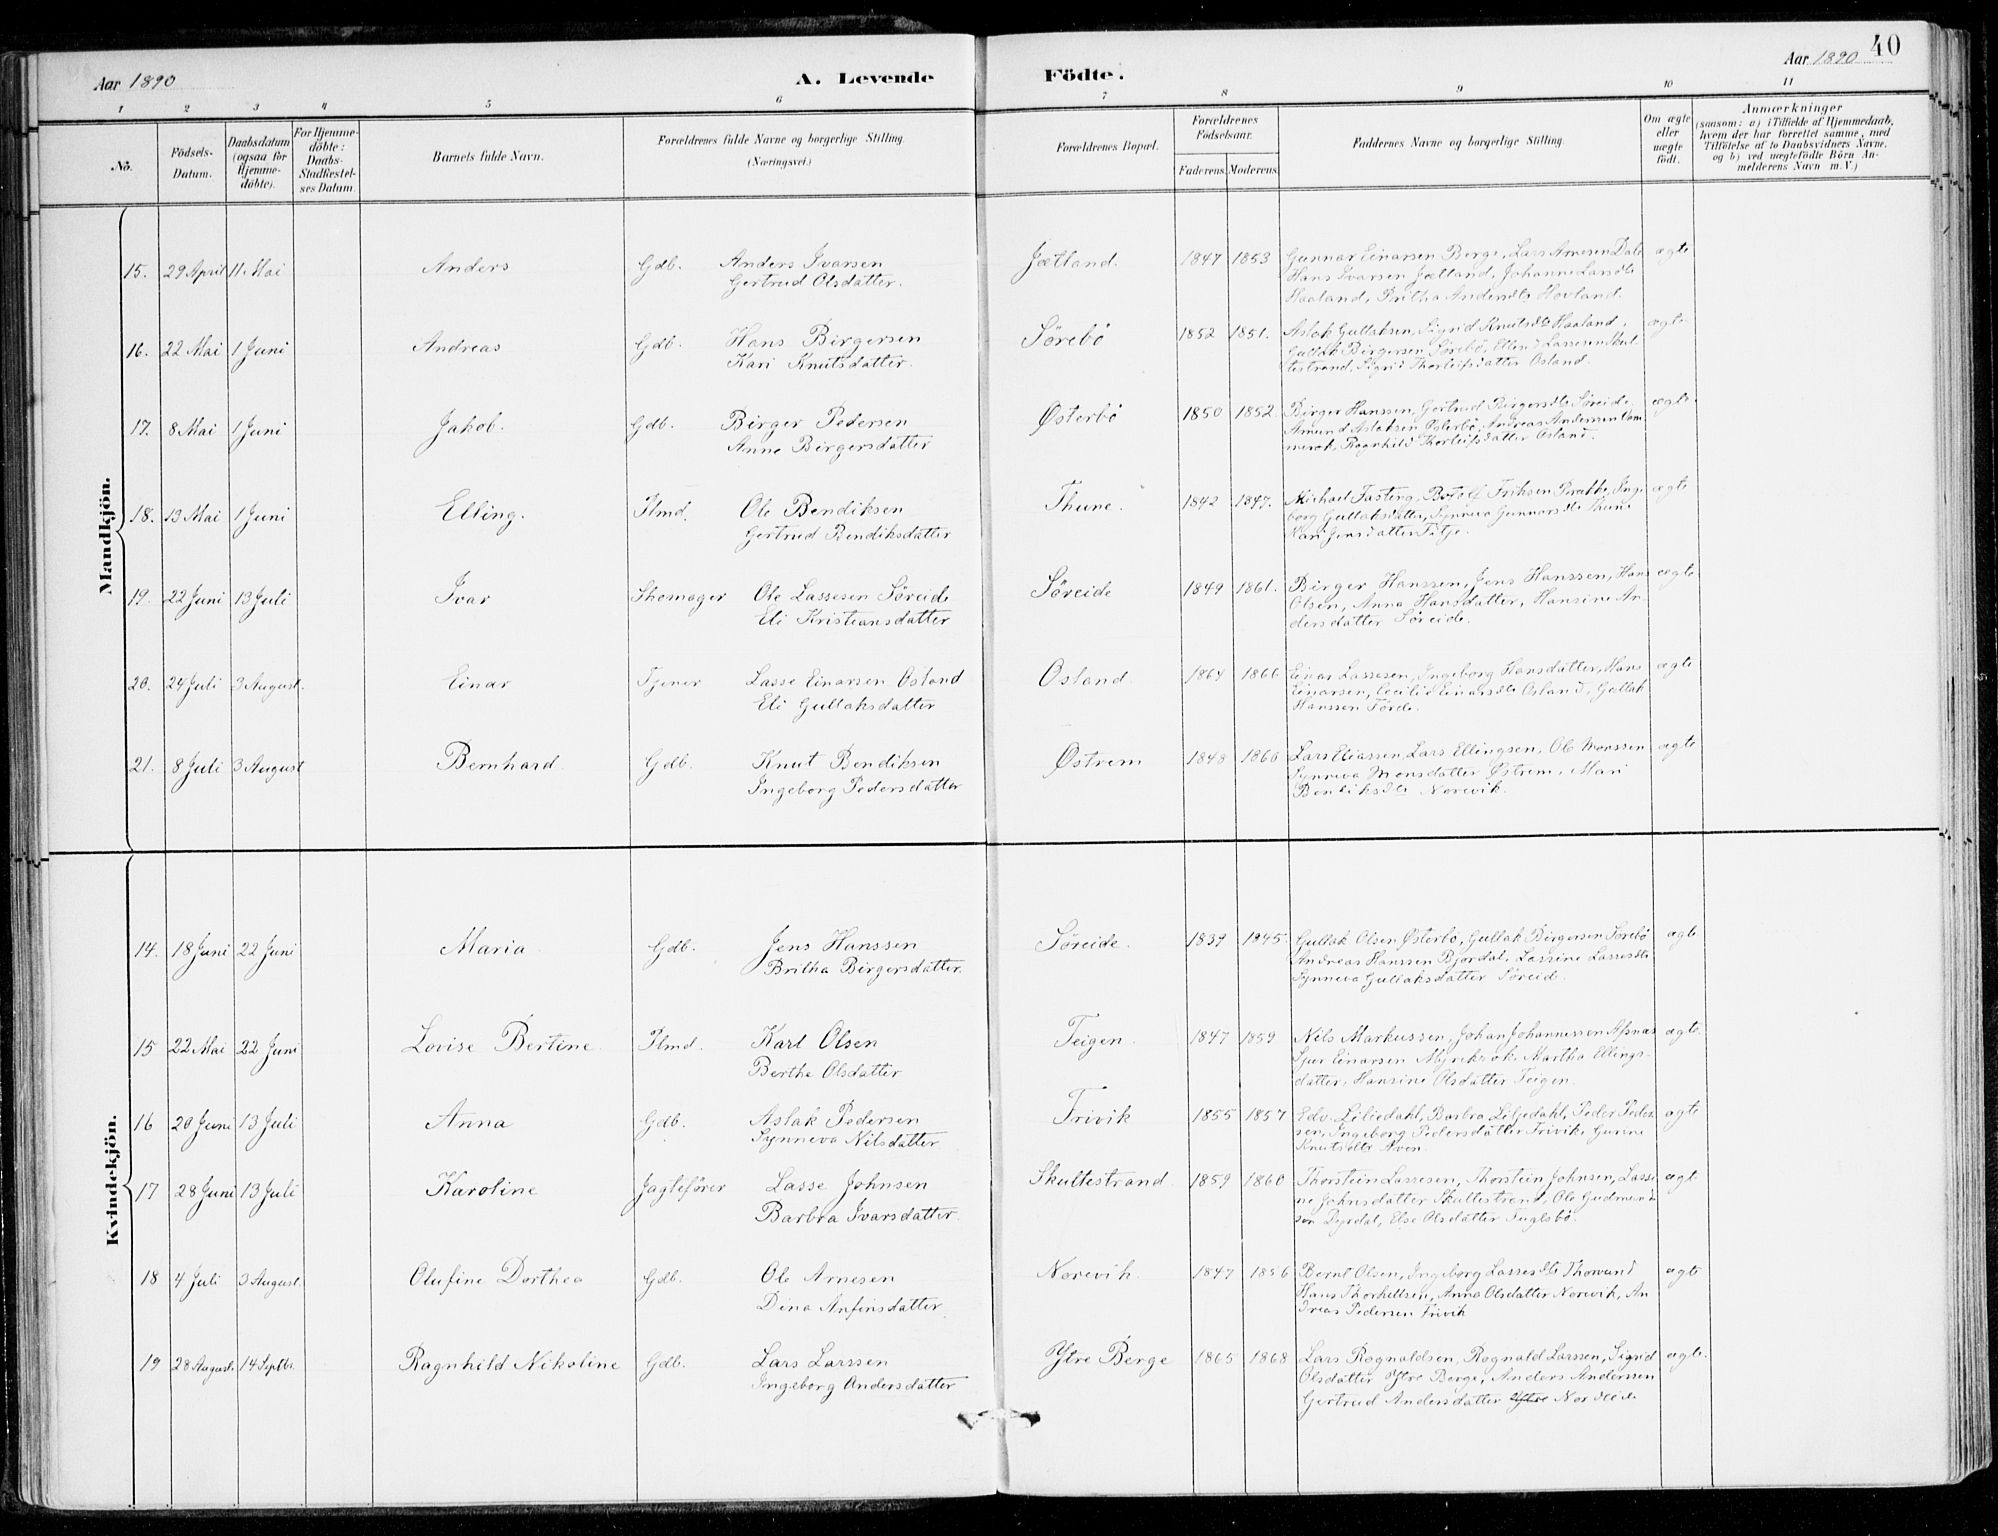 Aar 1890
A. Levende Födte.
Aar 1890
40
1 2 3 4 5 6 7 8 9 10 11
No.
Födsels-Datum.
Daabsdatum (ogsaa for Hjemme-döbte).
For Hjemme-döbte: Daabs-Stadfæstelses Datum.
Barnets fulde Navn.
Forældrenes fulde Navne og borgerlige Stilling. (Næringsvei.)
Forældrenes Bopæl.
Forældrenes Födselsaar.
Faderens. Moderens.
Faddernes Navne og borgerlige Stilling.
Om ægte eller uægte födt.
Anmærkninger
(saasom: a) i Tilfælde af Hjemmedaab, hvem der har forrettet samme, med Tilföielse af to Daabsvidners Navne, og b) ved uægtefödte Börn Anmelderens Navn m. V.)
Mandkjön.
15. 29 April 11 Mai Anders Gdb. Anders Ivarsen Jætland. 1847 1853 Gunnar Einarsen Berge, Lars Arnesen Dale ægte
Gertrud Olsdatter. Hans Ivarsen Jætland, Johanne Larsdtr
Haaland, Britha Andersdtr Hovland.
16. 22 Mai 1 Juni Andreas Gdb. Hans Birgersen Sørebö 1852 1851. Aslak Gullaksen, Sigrid Knutsdtr Haaland, ægte
Kari Knutsdatter. Gullak Birgersen Sørebö, Ellend Lassesen Skul
testrand, Sigrid Thorleifsdatter Osland.
17. 8 Mai 1 Juni Jakob. Gdb. Birger Pedersen Østerbö 1850 1852. Birger Hanssen, Gertrud Birgersdtr Søreide, ægte
Anne Birgersdatter Amund Aslaksen Østerbö, Andreas Anderssen
Ragnhild Thorleifsdatter Osland.
18. 13 Mai 1 Juni Elling. Plmd. Ole Bendiksen Thune. 1842 1847. Michael Fasting, Botolf Eriksen Bratte, Inge ægte
Gertrud Bendiksdatter borg Gullaksdatter, Synneva Gunnarsdtr Thune
Kari Jensdatter Fitje.
19. 22 Juni 13 Juli Ivar Skomager Ole Lassesen Søreide Søreide 1849 1861. Birger Hanssen, Jens Hanssen, Hans ægte
Eli Kristiansdatter Olsen, Anna Hansdatter, Hansine An
dersdatter Søreide.
20. 24 Juli 3 August. Einar Tjener Lasse Einarsen Osland Osland. 1864 1866 Einar Lassesen, Ingeborg Hansdatter, Hans ægte
Eli Gullaksdatter Einarsen, Cecilie Einarsdtr Osland, Gullak
Hanssen Førde.
21. 8 Juli 3 August Bernhard. Gdb. Knut Bendiksen Østrem 1848 1860 Lars Eliassen, Lars Ellingsen, Ole Monssen ægte
Ingeborg Pedersdatter Synneva Monsdatter Østrem, Mari
Bendiksdtr Norevik.
Kvindekjön.
14. 18 Juni 22 Juni Maria. Gdb. Jens Hanssen Søreide. 1839 1845. Gullak Olsen Østerbö, Gullak Birgersen Sørebö ægte
Britha Birgersdatter. Andreas Hanssen Bjordal, Lassine Lassesdtr
Synneva Gullaksdatter Søreid.
15 22 Mai 22 Juni Lovise Bertine. Plmd. Karl Olsen Teigen. 1847 1859 Nils Markussen, Johan Johannessen ægte
Berthe Olsdatter Sjur Einarsen Myrekrok, Martha Ellings-
datter, Hansine Olsdatter Teigen.
16 20 Juni 13 Juli Anna Gdb. Aslak Pedersen Trivik 1855 1857 Edv. Liljedahl, Barbra Liljedahl, Peder Peder ægte
Synneva Nilsdatter. sen, Ingeborg Pedersdatter Trivik, Gurine
Knutsdtr
17 28 Juni 13 Juli Karoline Jagtefører Lasse Johnsen Skultestrand 1859 1860 Thorstein Lassesen, Thorstein Johnsen, Lassi ægte
Barbra Ivarsdatter. ne Johnsdatter Skultestrand, Ole Gudmund
sen Dyrdal, Else Olsdatter Fuglsbö.
18 4 Juli 3 August. Olufine Dorthea Gdb. Ole Arnesen Norevik. 1847 1856 Bernt Olsen, Ingeborg Lassesdtr Thorsund ægte
Dina Anfinsdatter Hans Thorkelsen, Anna Olsdatter Norevik, An
dreas Pedersen Trivik
19 28 August. 14 Septbr. Ragnhild Nikoline Gdb. Lars Larssen Ytre Berge 1865 1868 Lars Rognaldsen, Rognald Larssen, Sigrid ægte.
Ingeborg Andersdatter Olsdatter Ytre Berge, Anders Anderssen
Gertrud Andersdatter Ytre Nordeide